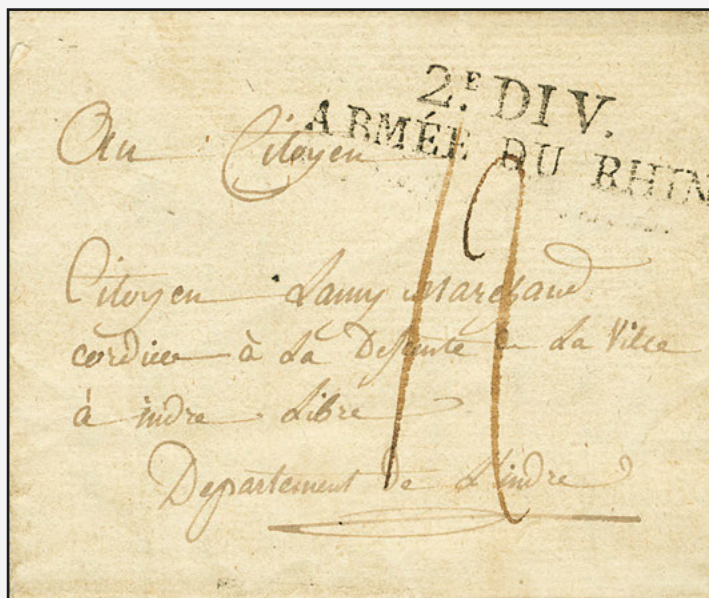 2.E DIV.
ARMÉE DU RHIN
Au Citoyen
12
Citoyen Lamy Marchand
cordier à La Desente de La Ville
à indre Libre
Departement de L'indre